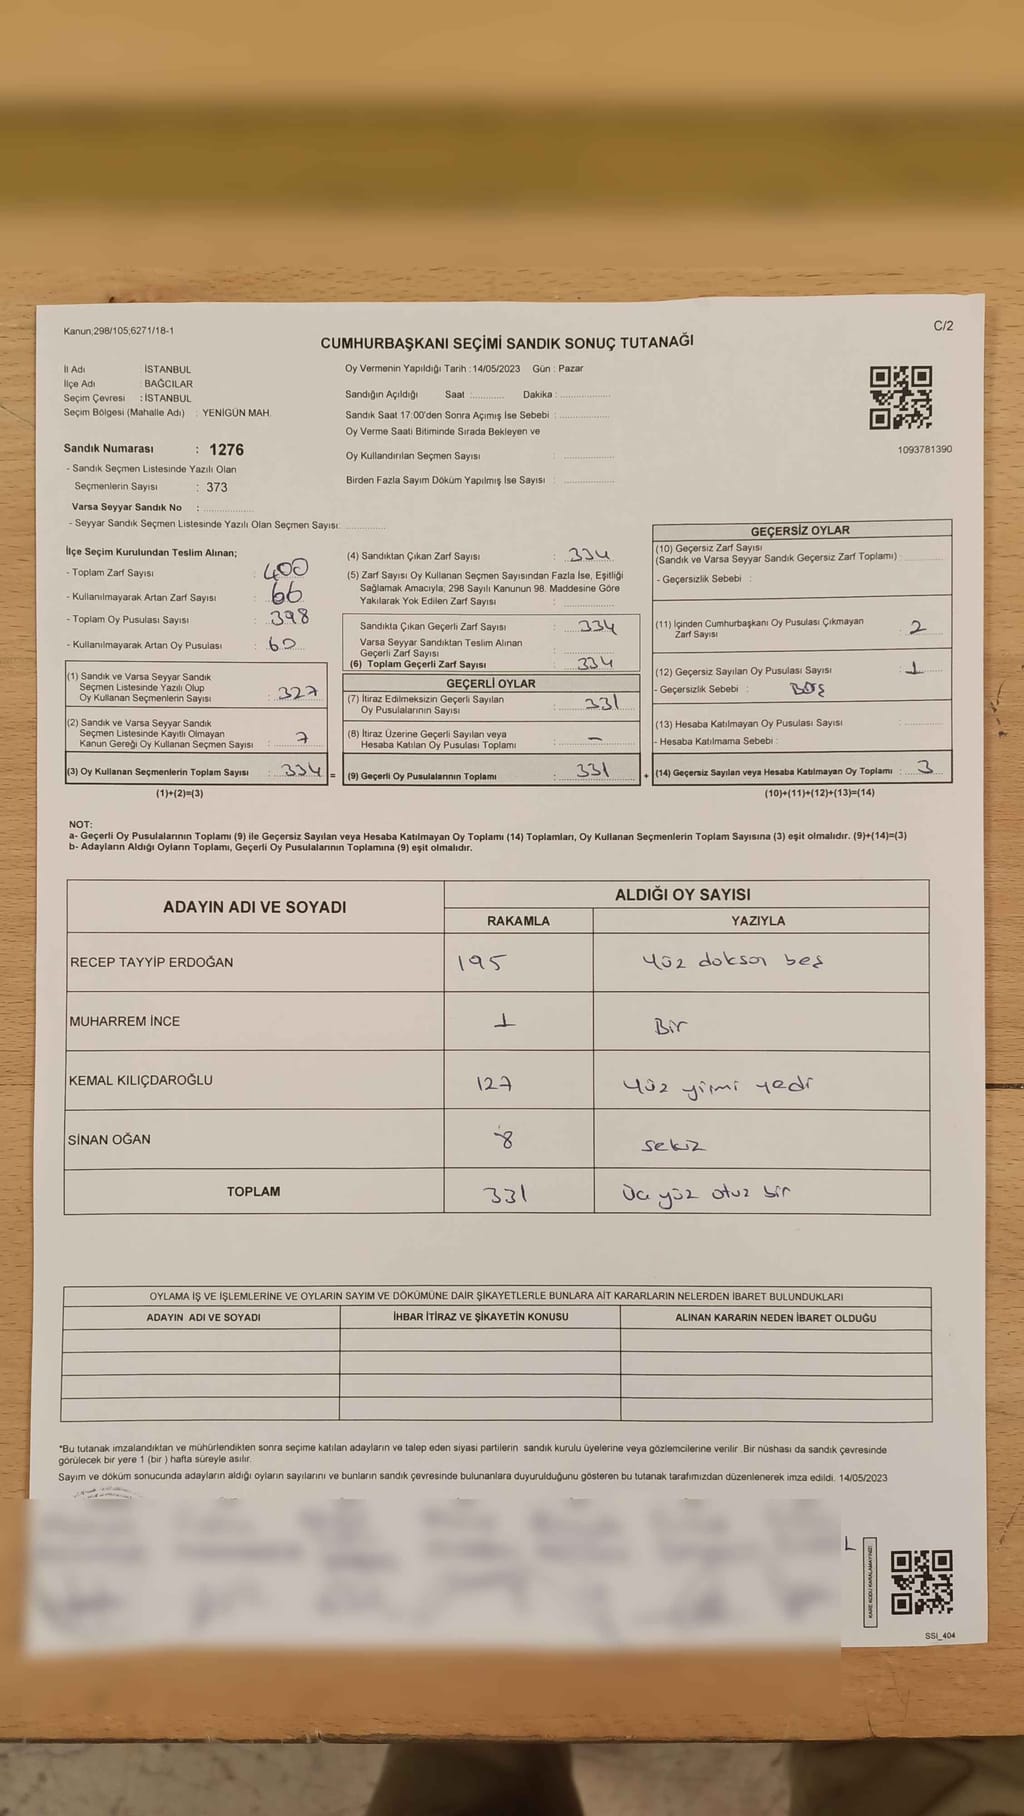 Kanun;298/105;6271/18-1
C/2
CUMHURBAŞKANI SEÇİMİ SANDIK SONUÇ TUTANAĞI
İl Adı : İSTANBUL
İlçe Adı : BAĞCILAR
Seçim Çevresi : İSTANBUL
Seçim Bölgesi (Mahalle Adı) : YENİGÜN MAH.
Sandık Numarası : 1276
- Sandık Seçmen Listesinde Yazılı Olan
Seçmenlerin Sayısı : 373
Varsa Seyyar Sandık No :
- Seyyar Sandık Seçmen Listesinde Yazılı Olan Seçmen Sayısı:
Oy Vermenin Yapıldığı Tarih : 14/05/2023 Gün : Pazar
Sandığın Açıldığı Saat :............ Dakika :
Sandık Saat 17:00'den Sonra Açımış İse Sebebi :
Oy Verme Saati Bitiminde Sırada Bekleyen ve
Oy Kullandırılan Seçmen Sayısı :
Birden Fazla Sayım Döküm Yapılmış İse Sayısı :
1093781390
İlçe Seçim Kurulundan Teslim Alınan;
- Toplam Zarf Sayısı : 400
- Kullanılmayarak Artan Zarf Sayısı : 66
- Toplam Oy Pusulası Sayısı : 398
- Kullanılmayarak Artan Oy Pusulası : 60
(1) Sandık ve Varsa Seyyar Sandık
Seçmen Listesinde Yazılı Olup
Oy Kullanan Seçmenlerin Sayısı : 327
(2) Sandık ve Varsa Seyyar Sandık
Seçmen Listesinde Kayıtlı Olmayan
Kanun Gereği Oy Kullanan Seçmen Sayısı : 7
(3) Oy Kullanan Seçmenlerin Toplam Sayısı : 334 =
(1)+(2)=(3)
(4) Sandıktan Çıkan Zarf Sayısı : 334
(5) Zarf Sayısı Oy Kullanan Seçmen Sayısından Fazla İse, Eşitliği
Sağlamak Amacıyla; 298 Sayılı Kanunun 98. Maddesine Göre
Yakılarak Yok Edilen Zarf Sayısı :
Sandıkta Çıkan Geçerli Zarf Sayısı : 334
Varsa Seyyar Sandıktan Teslim Alınan
Geçerli Zarf Sayısı :
(6) Toplam Geçerli Zarf Sayısı : 334
GEÇERLİ OYLAR
(7) İtiraz Edilmeksizin Geçerli Sayılan
Oy Pusulalarının Sayısı : 331
(8) İtiraz Üzerine Geçerli Sayılan veya
Hesaba Katılan Oy Pusulası Toplamı : -
(9) Geçerli Oy Pusulalarının Toplamı : 331 +
GEÇERSİZ OYLAR
(10) Geçersiz Zarf Sayısı
(Sandık ve Varsa Seyyar Sandık Geçersiz Zarf Toplamı) :
- Geçersizlik Sebebi :
(11) İçinden Cumhurbaşkanı Oy Pusulası Çıkmayan
Zarf Sayısı : 2
(12) Geçersiz Sayılan Oy Pusulası Sayısı : 1
- Geçersizlik Sebebi : BOŞ
(13) Hesaba Katılmayan Oy Pusulası Sayısı :
- Hesaba Katılmama Sebebi :
(14) Geçersiz Sayılan veya Hesaba Katılmayan Oy Toplamı : 3
(10)+(11)+(12)+(13)=(14)
NOT:
a- Geçerli Oy Pusulalarının Toplamı (9) ile Geçersiz Sayılan veya Hesaba Katılmayan Oy Toplamı (14) Toplamları, Oy Kullanan Seçmenlerin Toplam Sayısına (3) eşit olmalıdır. (9)+(14)=(3)
b- Adayların Aldığı Oyların Toplamı, Geçerli Oy Pusulalarının Toplamına (9) eşit olmalıdır.
ADAYIN ADI VE SOYADI ALDIĞI OY SAYISI
RAKAMLA YAZIYLA
RECEP TAYYİP ERDOĞAN 195 Yüz doksan beş
MUHARREM İNCE 1 Bir
KEMAL KILIÇDAROĞLU 127 Yüz yirmi yedi
SİNAN OĞAN 8 sekiz
TOPLAM 331 Üç yüz otuz bir
OYLAMA İŞ VE İŞLEMLERİNE VE OYLARIN SAYIM VE DÖKÜMÜNE DAİR ŞİKAYETLERLE BUNLARA AİT KARARLARIN NELERDEN İBARET BULUNDUKLARI
ADAYIN ADI VE SOYADI İHBAR İTİRAZ VE ŞİKAYETİN KONUSU ALINAN KARARIN NEDEN İBARET OLDUĞU
*Bu tutanak imzalandıktan ve mühürlendikten sonra seçime katılan adayların ve talep eden siyasi partilerin sandık kurulu üyelerine veya gözlemcilerine verilir. Bir nüshası da sandık çevresinde
görülecek bir yere 1 (bir ) hafta süreyle asılır.
Sayım ve döküm sonucunda adayların aldığı oyların sayılarını ve bunların sandık çevresinde bulunanlara duyurulduğunu gösteren bu tutanak tarafımızdan düzenlenerek imza edildi. 14/05/2023
KARE KODU KARALAMAYINIZ!
SSI_404